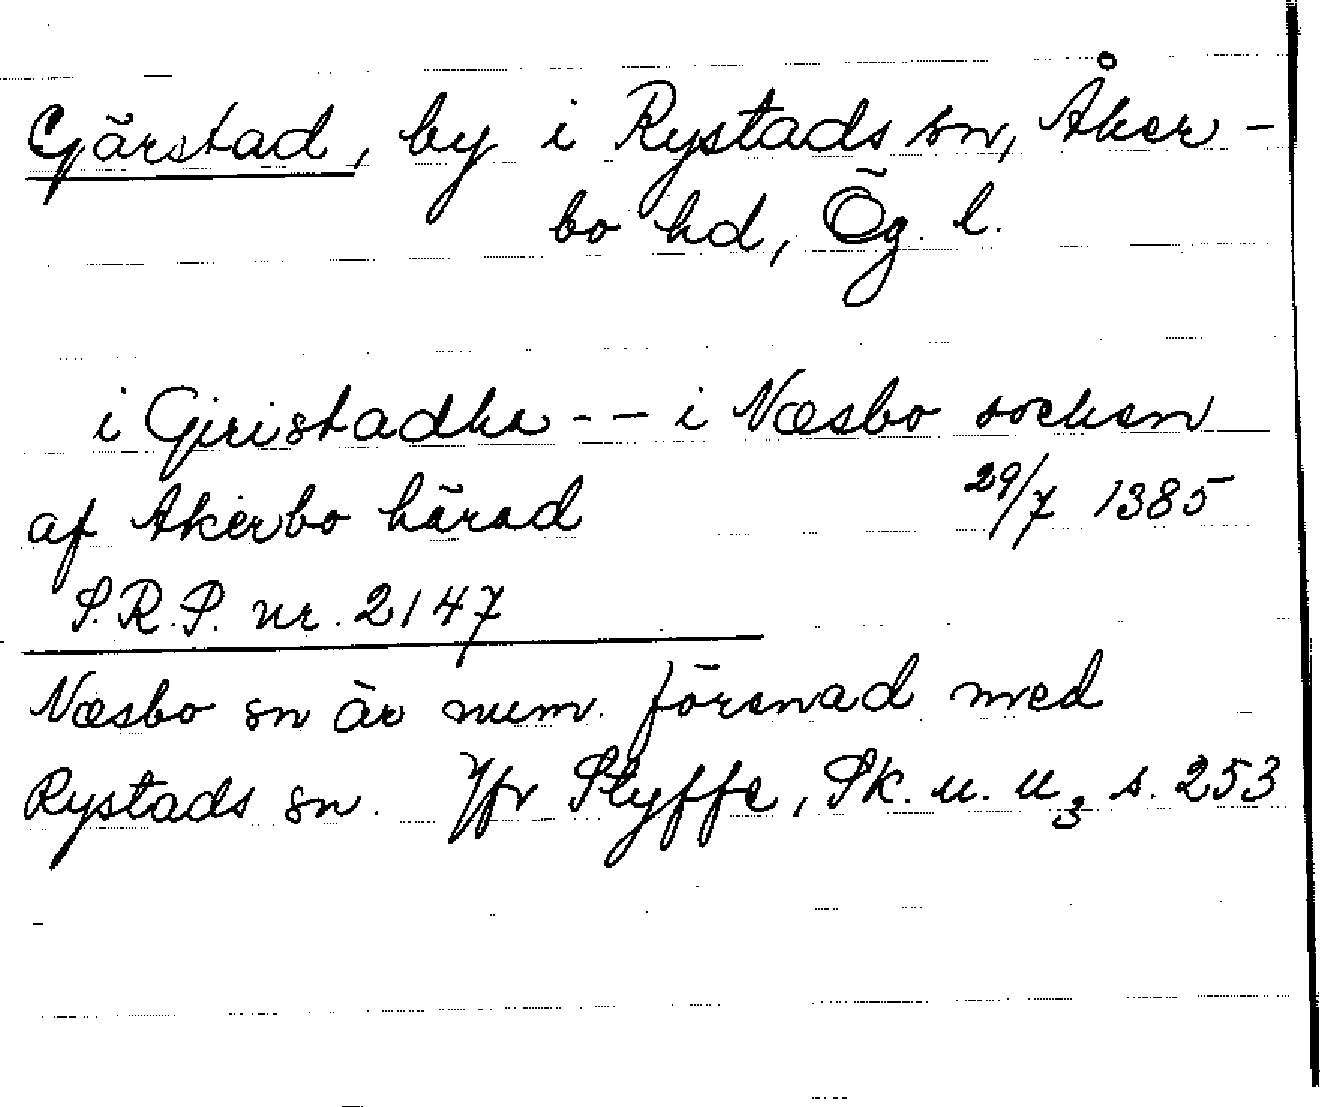 Gärstad, by i Rystads sn, Åker-
bo hd, Ög. l.
i Giristadha -- i Næsbo socken
af Akerbo härad 29/7 1385
S.R.P. nr. 2147
Næsbo sn är num. förenad med
Rystads sn. Jfr Styffe, Sk. u. u3 s. 253